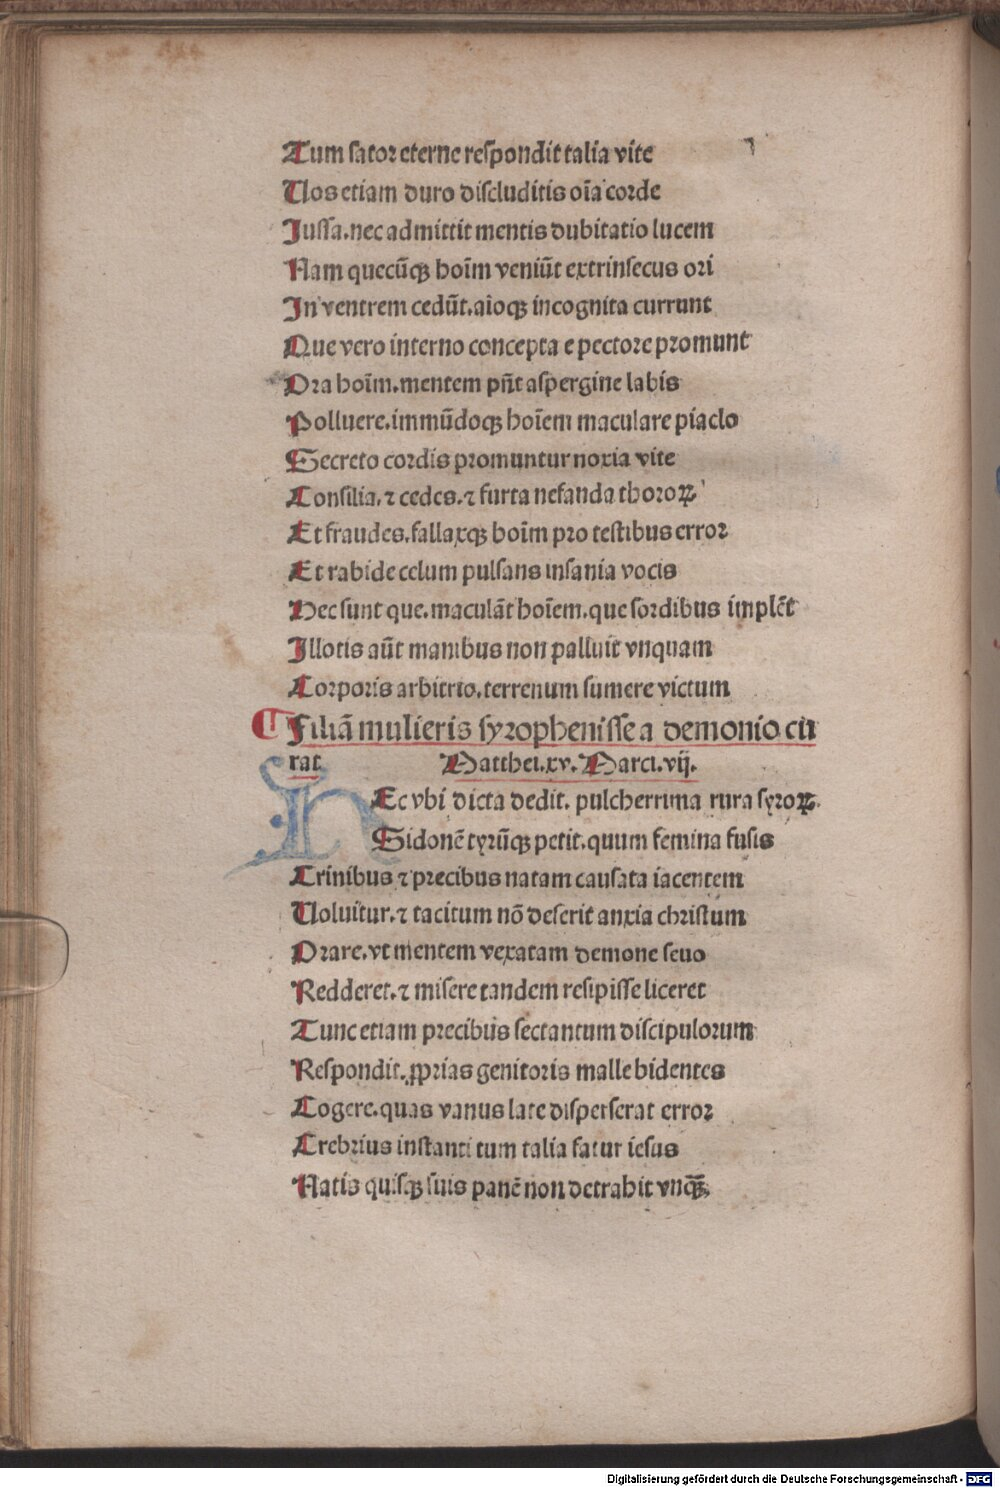 Tum sator eterne respondit talia vite
Uos etiam duro discluditis oı̄a corde
Jussa. nec admittit mentis dubitatio lucem
Nam quecūqꝫ hoı̄m veniūt extrinsecus ori
In ventrem cedūt. aı̄oqꝫ incognita currunt
Que vero interno concepta e pectore promunt
Ora hoı̄m. mentem pn̄t aspergine labis
Polluere. immūdoqꝫ hoı̄em maculare piaclo
Secreto cordis promuntur noxia vite
Consilia. ⁊ cedes. ⁊ furta nefanda thoroꝝ
Et fraudes. fallaxqꝫ hoı̄m pro testibus error
Et rabide celum pulsans insania vocis
Hec sunt que. maculāt hoı̄em. que sordibus implēt
Illotis aūt manibus non palluit vnquam
Corporis arbitrio. terrenum sumere victum
¶ Filiā mulieris syrophenisse a demonio cu
rat Matthei. xv. Marci. vij.
HEc vbi dicta dedit. pulcherrima rura syroꝝ
Sidonē tyrūqꝫ petit. quum femina fusis
Crinibus ⁊ precibus natam causata iacentem
Uoluitur. ⁊ tacitum nō deserit anxia christum
Orare. vt mentem vexatam demone seuo
Redderet. ⁊ misere tandem resipisse liceret
Tunc etiam precibus sectantum discipulorum
Respondit. ꝓprias genitoris malle bidentes
Cogere. quas vanus late disperserat error
Crebrius instanti tum talia fatur iesus
Natis quisqꝫ suis panē non detrahit vnqꝫ̄.
Digitalisierung gefördert durch die Deutsche Forschungsgemeinschaft - DFG